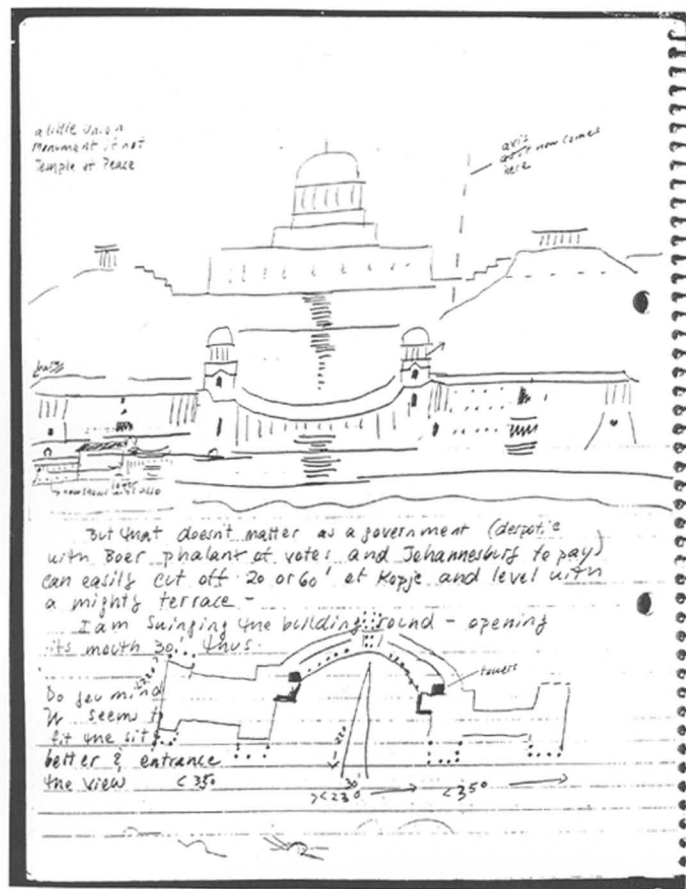 a little Union
Monument if not
Temple of Peace
axis
now comes
here
But that doesn't matter as a government (despotic
with Boer phalanx of votes and Johannesburg to pay)
can easily cut off 20 or 60' of Kopje and level with
a mighty terrace -
I am swinging the building round - opening
its mouth 30' thus.
towers
Do you mind
It seems to
fit the site
better & entrance
the view
< 350
30'
> < 230
< 350